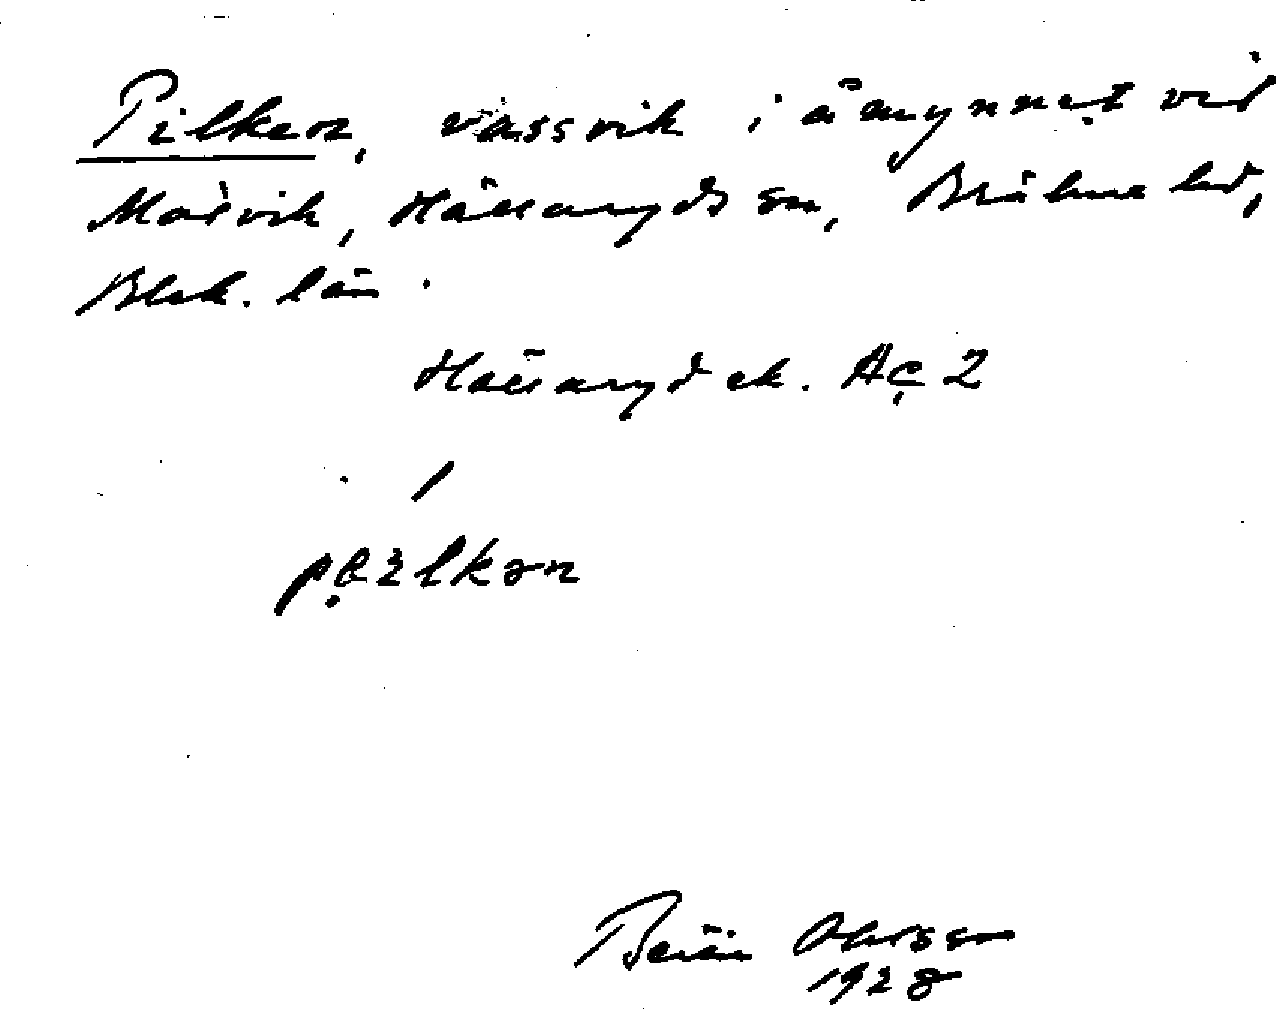 Pilken, vassvik i åmynnet vid
Matvik, Hällaryds sn, Bräkne hd,
Blek. län.
Hällaryd ek. Aç 2
Ohlsson
1928